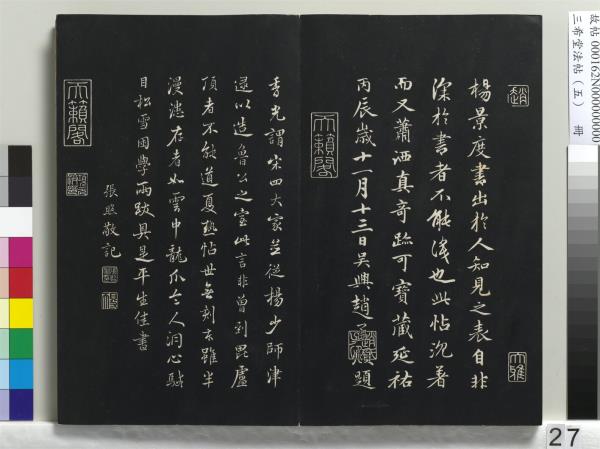 楊景度書出於人知見之表自非
深於書者不能識也此帖沉著
而又蕭洒真奇跡可寶藏延祐
丙辰歲十一月十三日吳興趙孟頫題
趙
天籟閣
大雅
香光謂宋四大家並從楊少師津
逮以造魯公之室此言非曾到毘盧
頂者不能道夏熱帖世無刻本雖半
漫漶存者如雲中龍爪令人洞心駴
目松雪困學兩跋具是平生佳書
張照敬記
天籟閣
故帖 000162N000000000
三希堂法帖（五） 冊
27